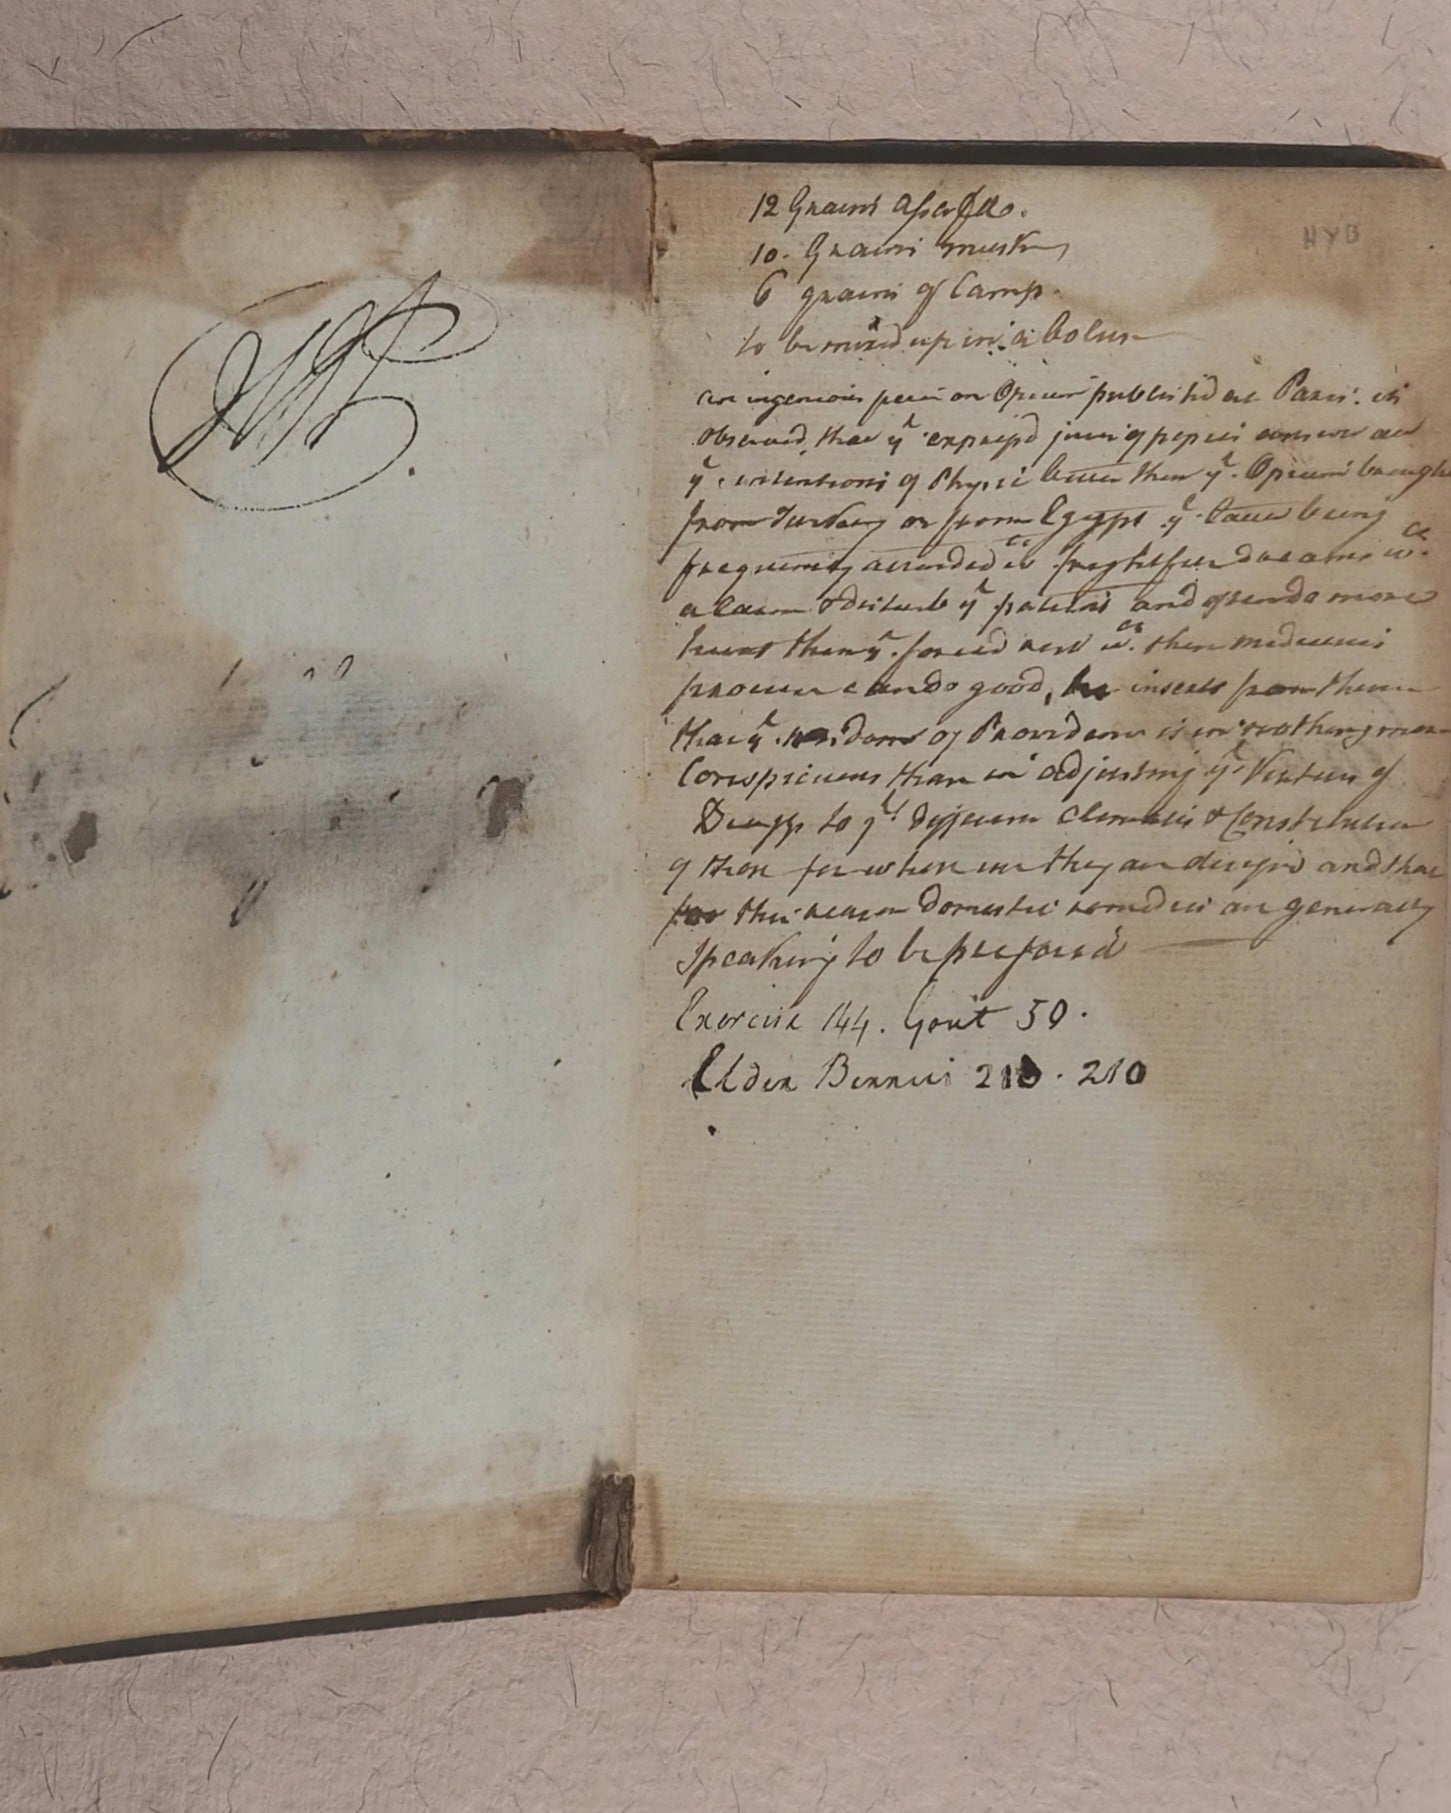 12 Grains Asafœ.
10. Grains musk
6 grains of Camp.
to be mixed up in a bolus
an ingenious piece on Opium published at Paris. it is
observed, that yᵉ express'd juice of popies answer all
yᵉ intentions of Physic better then yᵉ Opium brought
from Turkey or from Egypt yᵉ latter being
frequently attended wᵗʰ frightfull dreams wᶜʰ
alarm & disturb yᵉ patients and often do more
hurt then yᵉ forced rest wᶜʰ these medicines
procure can do good, he infers from thence
that yᵉ wisdom of Providence is in nothing more
Conspicuous than in adjusting yᵉ Virtues of
Druggs to yᵉ different climates & Constitution
of those for whose use they are design'd and that
for this reason domestic remedies are generally
speaking to be prefered
Exercise 144. Gout 50.
Elder Berries 210. 210
HYB